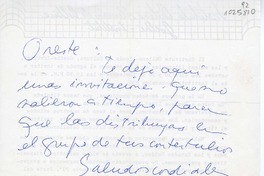 92
1025810
Oreste:
Te dejo aquí
unas invitaciones que no
salieron a tiempo, para
que las distribuyas en
el grupo de tus contertulios
Saludos cordiales